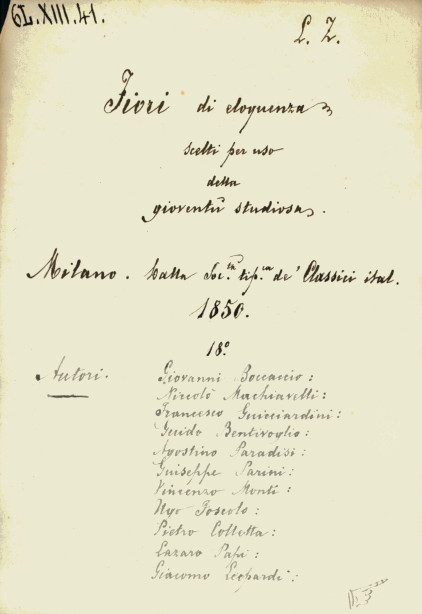 6L.XIII.41.
L. Z.
Fiori di eloquenza
scelti per uso
della
gioventù studiosa.
Milano. Dalla Soc.tà tip.ca de' Classici ital.
1850.
18°
Autori.
Giovanni Boccaccio:
Niccolò Machiavelli:
Francesco Guicciardini:
Guido Bentivoglio:
Agostino Paradisi:
Guiseppe Parini:
Vincenzo Monti:
Ugo Foscolo:
Pietro Colletta:
Lazaro Papi:
Giacomo Leopardi: